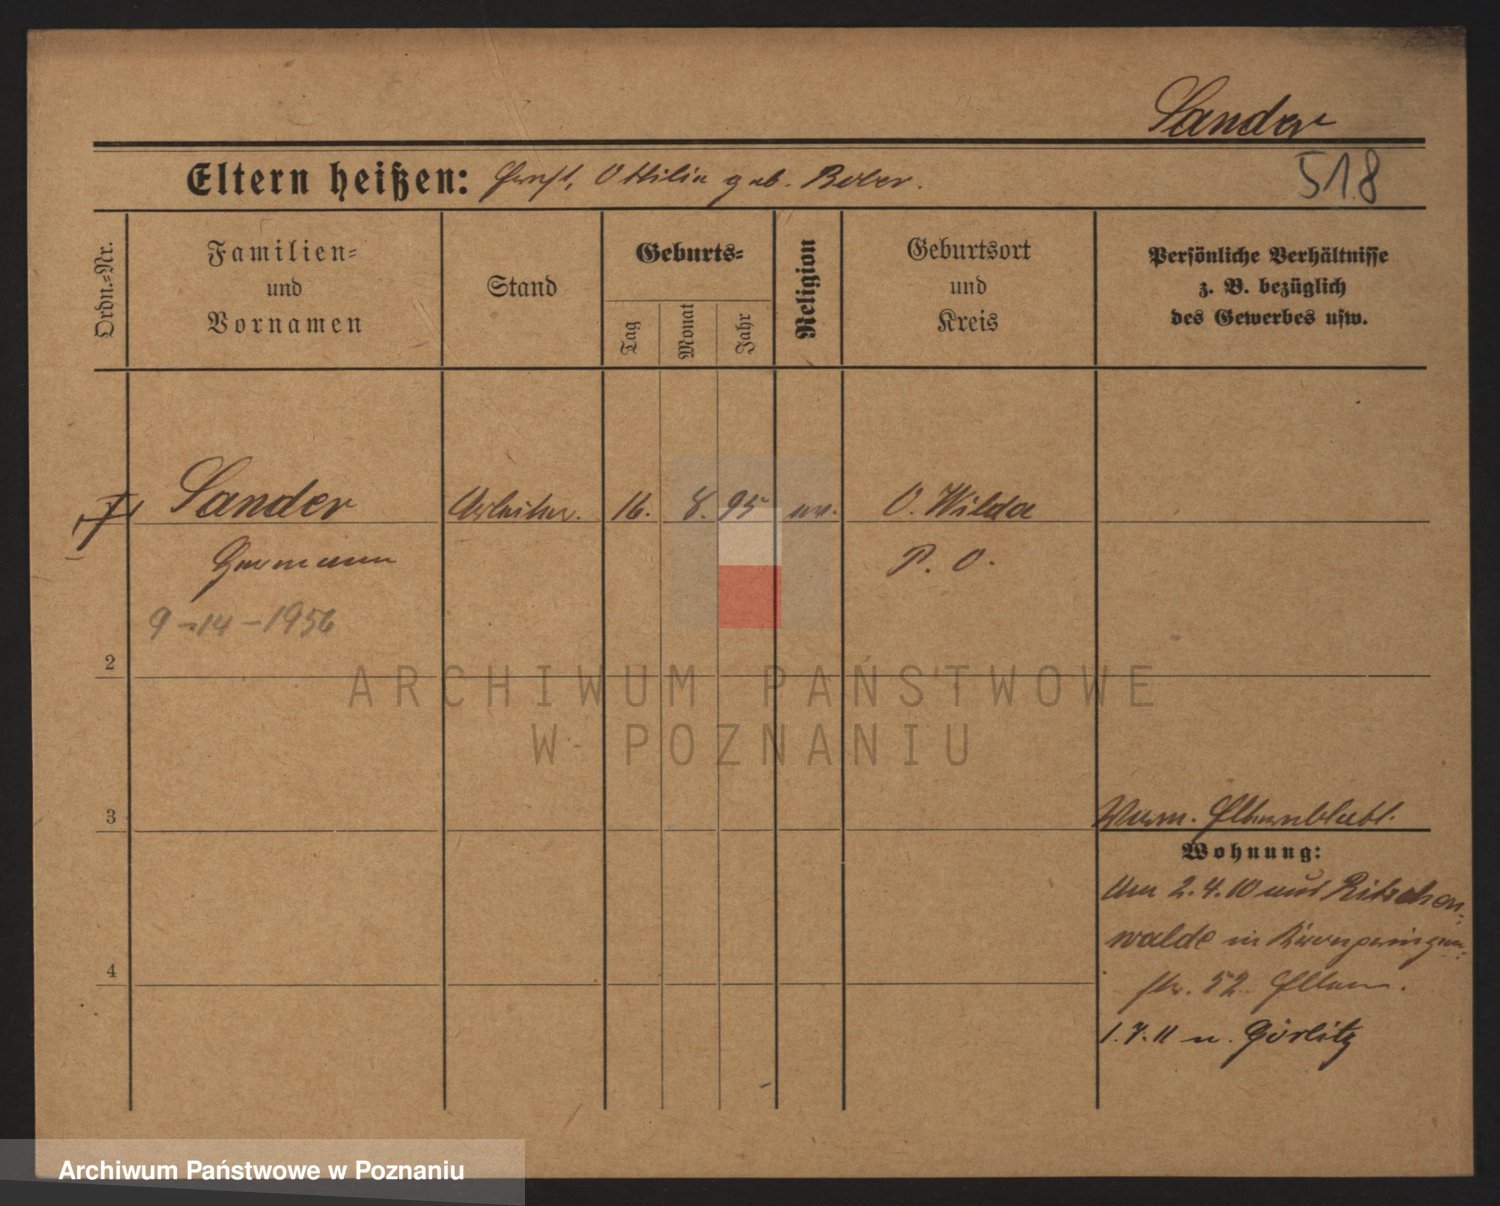 Sander
518
Eltern heißen: Ernst, Ottilie geb. Beler.
Ordn.-Nr.
Familien-
und
Vornamen
Stand
Geburts-
Tag
Monat
Jahr
Religion
Geburtsort
und
Kreis
Persönliche Verhältnisse
z. B. bezüglich
des Gewerbes usw.
Sander Arbeiter. 16. 8. 95 ev. O. Wilda
Hermann P. O.
9-14-1956
2
ARCHIWUM PAŃSTWOWE
W POZNANIU
3
Elternblatt.
Wohnung:
Am 2.4.10 aus Ritschen-
walde in
4
str. 52 Eltern.
1.7.11 n. Görlitz
Archiwum Państwowe w Poznaniu